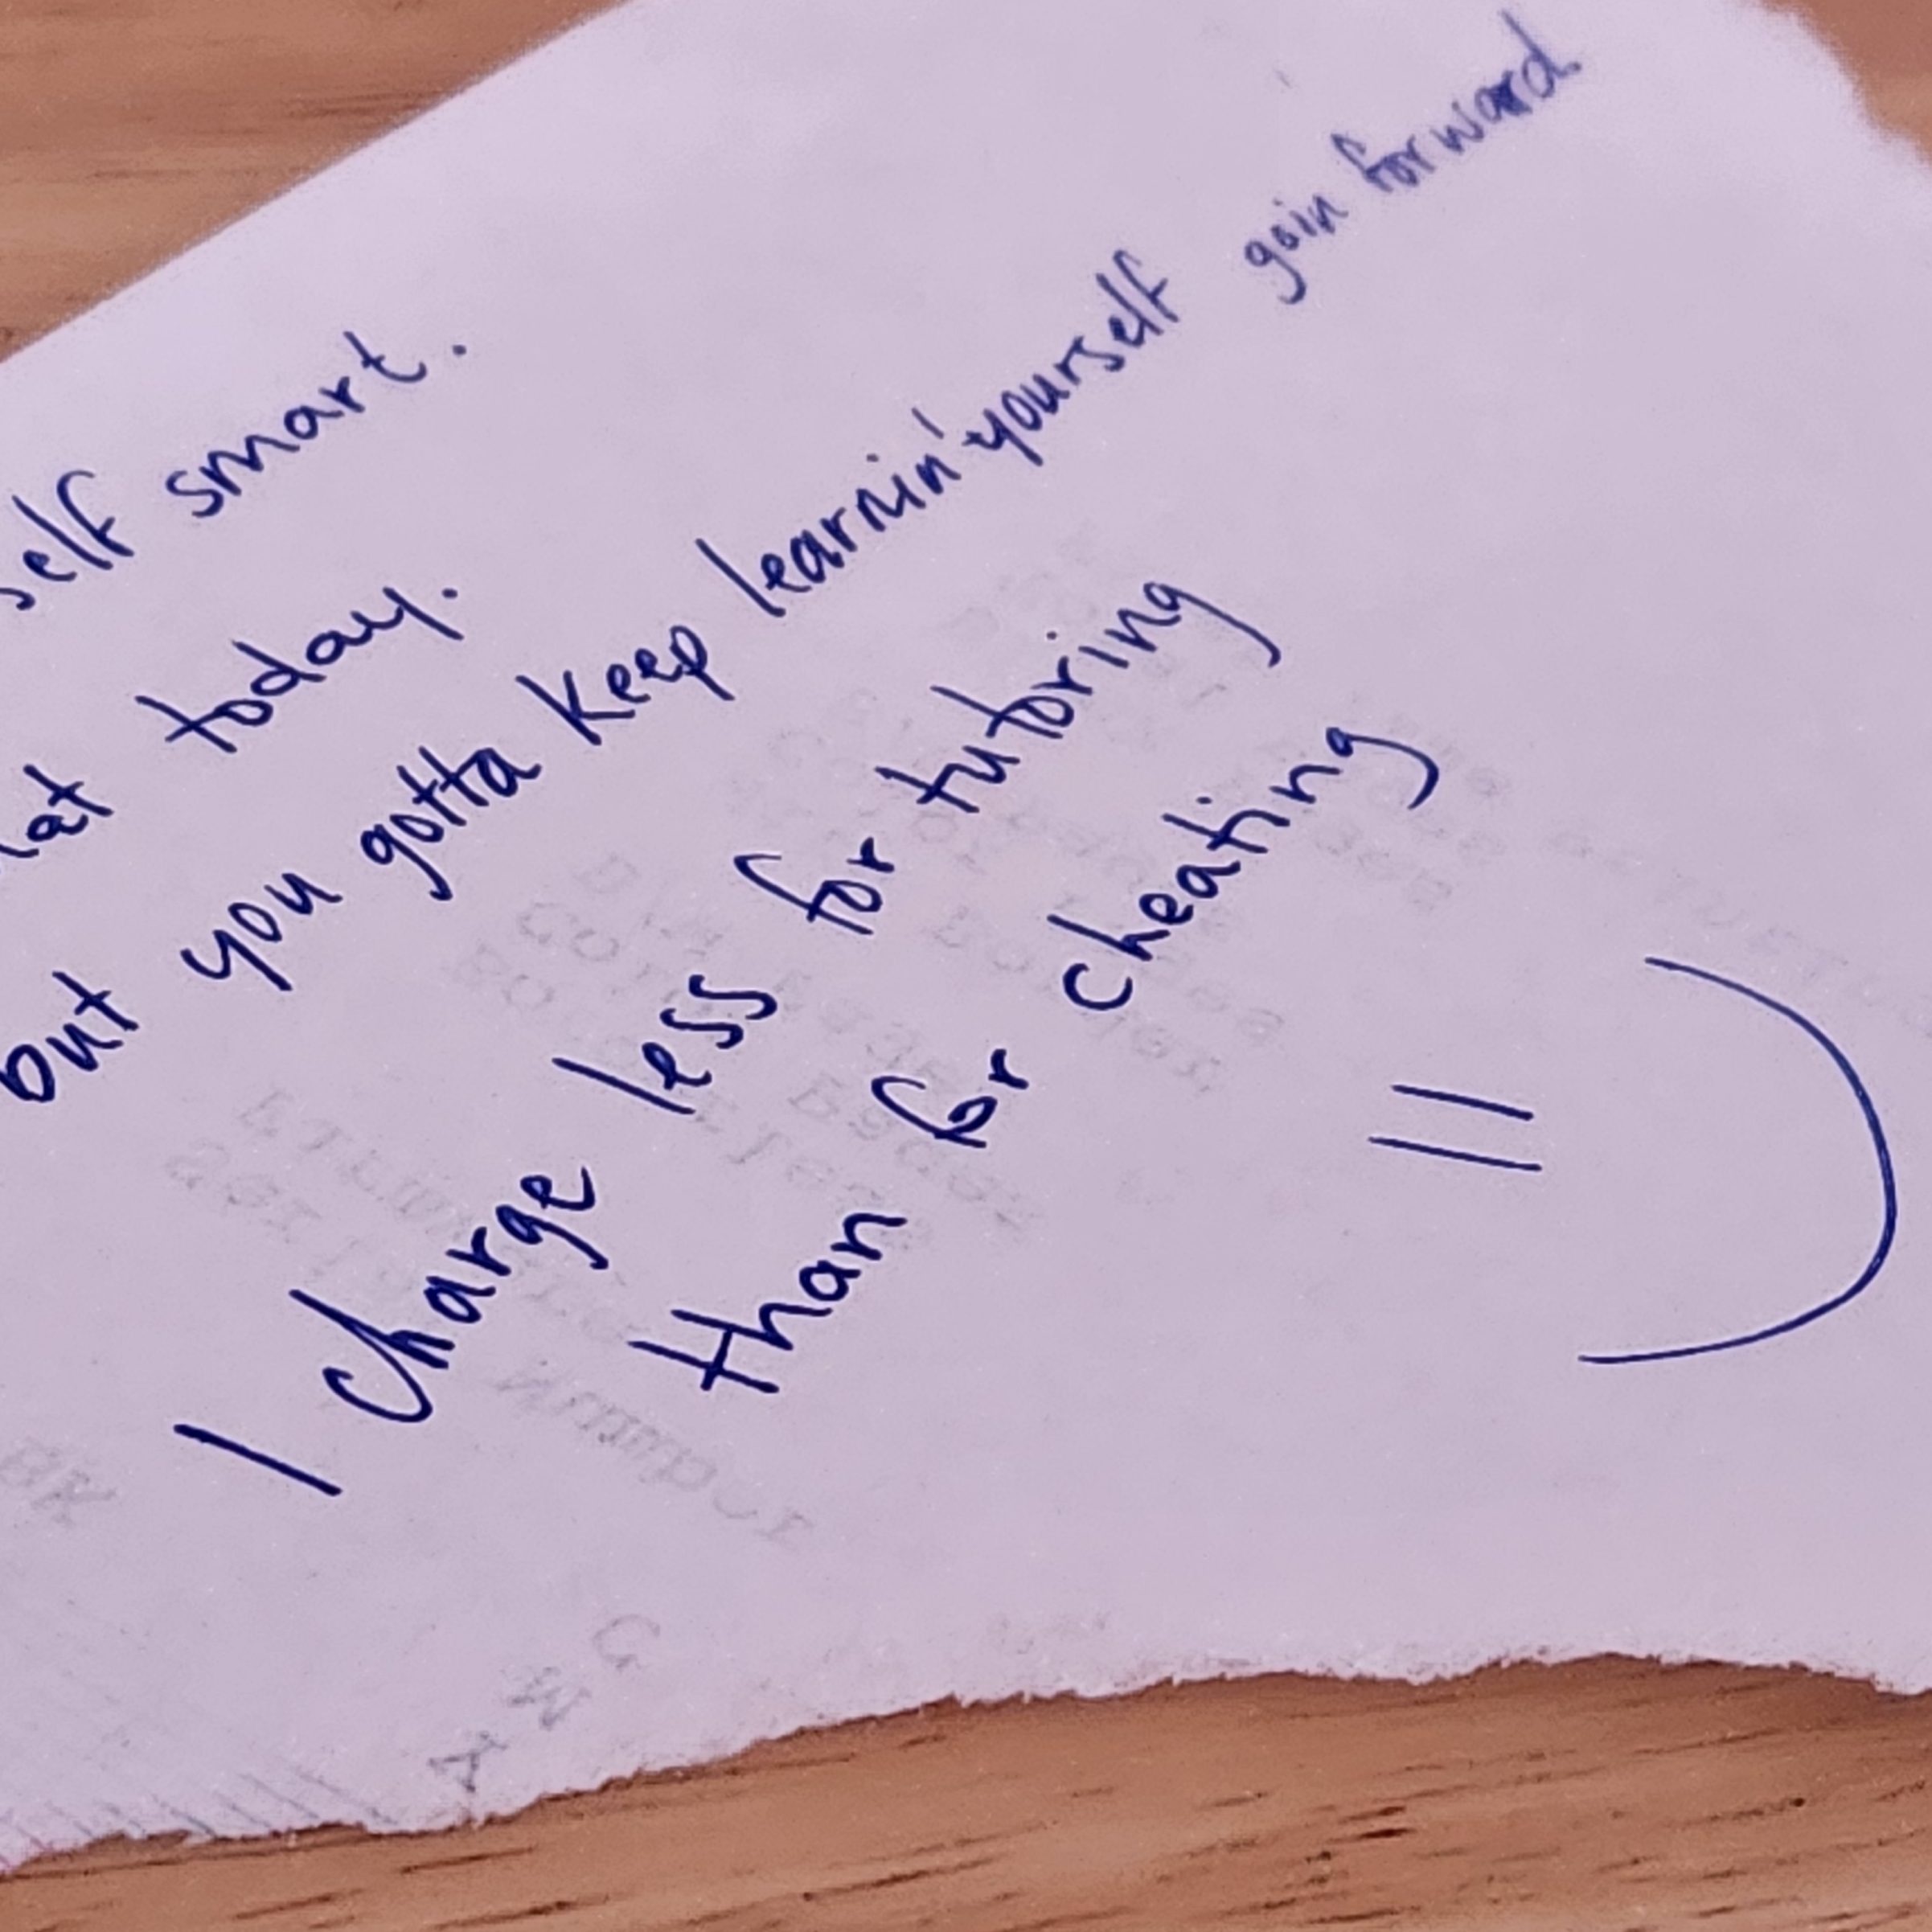 self smart.
today.
but you gotta keep learnin' yourself goin forward.
I charge less for tutoring
than for cheating
=)